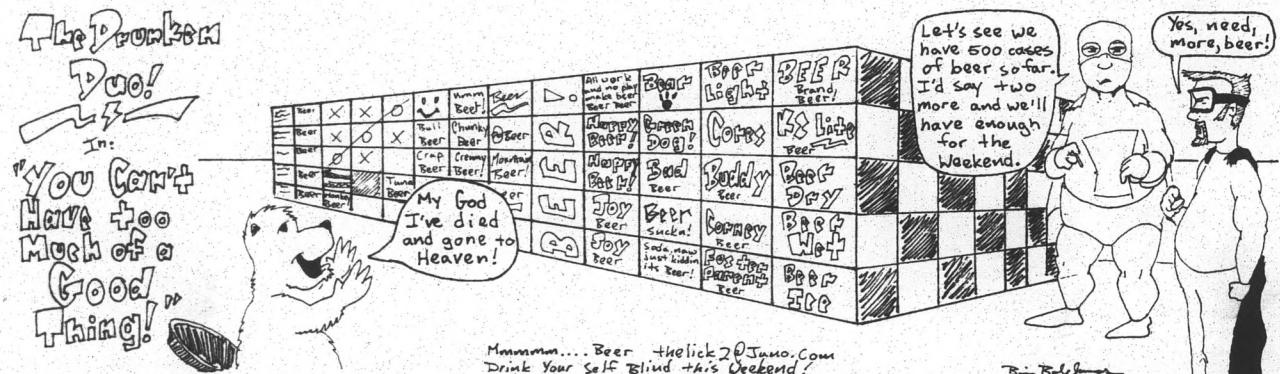 The Drunken
Duo!
In:
"You Can't
Have too
Much of a
Good
Thing!"
My God
I've died
and gone to
Heaven!
Beer
Beer
Beer
Beer
X X O
X O X
O X
Ummm
Beer!
Beer
Bull
Beer
Chunky
Beer
@Beer
Crap
Beer
Creamy
Beer!
Mountain
Beer!
Tuna
Beer
BEER
All work
and no play
make beer
Beer Beer
Happy
Beer!
Happy
Beer!
Joy
Beer
Joy
Beer
Bear
Green
Dog!
Bud
Beer
Beer
Sucka!
Soda, naw
just kiddin
its Beer!
Beer
Light
Corrs
Buddy
Beer
Corney
Beer
Foster
Parent
Beer
BEER
Brand,
Beer!
KS Lite
Beer
Beer
Dry
Beer
Wet
Beer
Ice
Let's see we
have 500 cases
of beer so far.
I'd say two
more and we'll
have enough
for the
Weekend.
Yes, need,
more, beer!
Mmmmmm.... Beer thelick2@Juno.Com
Drink Your Self Blind this Weekend!